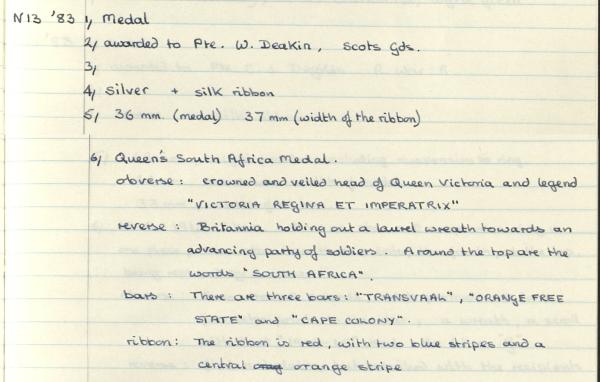 N13 '83 1, Medal
2, awarded to Pte. W. Deakin, Scots Gds.
3,
4, silver + silk ribbon
5, 36 mm. (medal) 37 mm (width of the ribbon)
6, Queen's South Africa Medal.
obverse: crowned and veiled head of Queen Victoria and legend
"VICTORIA REGINA ET IMPERATRIX"
reverse: Britannia holding out a laurel wreath towards an
advancing party of soldiers. Around the top are the
words "SOUTH AFRICA".
bars: There are three bars: "TRANSVAAL", "ORANGE FREE
STATE" and "CAPE COLONY".
ribbon: The ribbon is red, with two blue stripes and a
central orange stripe